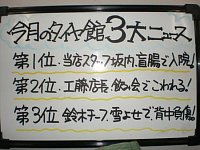 今月のタイヤ館3大ニュース
第1位・当店スタッフ坂内、盲腸で入院!
第2位・工藤店長、飲み会でこわれる!
第3位・鈴木チーフ、雪よせで背中負傷!